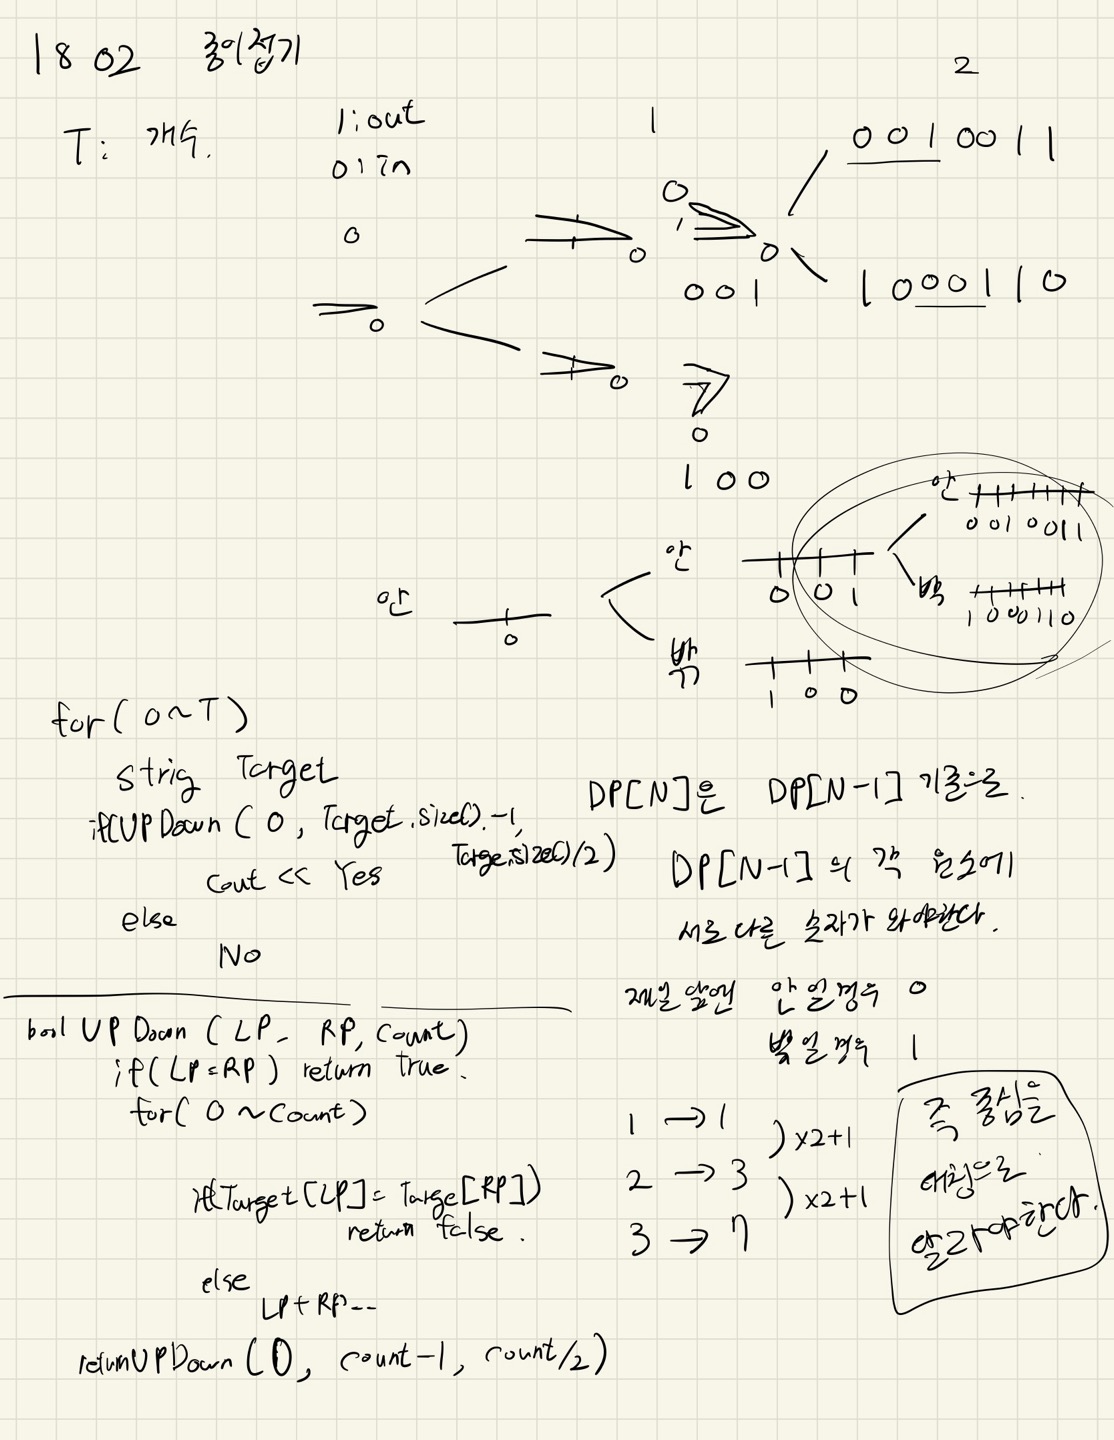 1802 종이접기
2
T: 개수.
1: out
0 in
1
0010011
0
0
1
0
0
001
1000110
0
0
0
100
안
0010011
안
001
안
0
밖
1000110
밖
100
for( 0~T)
strig Target
if(UPDown ( 0, Target.size().-1,
Targe.size()/2)
cout << Yes
else
No
DP[N]은 DP[N-1] 기준으로.
DP[N-1]의 각 원소에
서로 다른 숫자가 와야한다.
제일 앞엔 안일경우 0
밖일경우 1
bool UPDown (LP, RP, count)
if( LP=RP ) return true.
for( 0 ~count)
if(Target[LP]= Targe[RP])
return false.
else
LP+ RP--
return UPDown (0, count-1, count/2)
1 → 1
) x2+1
2 → 3
) x2+1
3 → 7
즉 중심을
대칭으로
달라야한다.